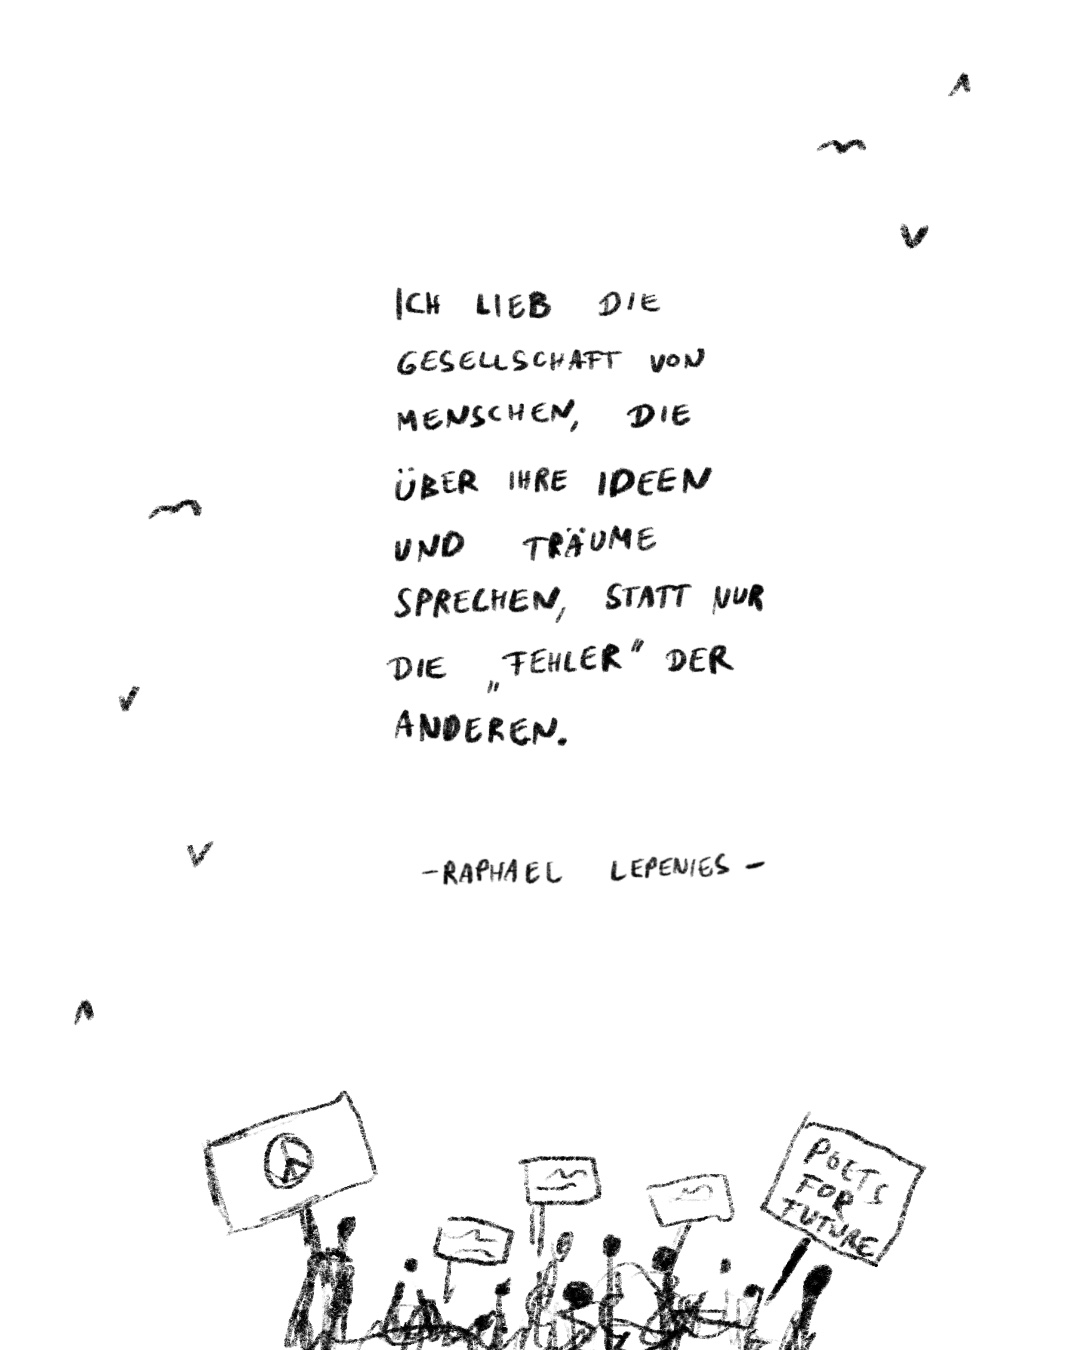 ICH LIEB DIE
GESELLSCHAFT VON
MENSCHEN, DIE
ÜBER IHRE IDEEN
UND TRÄUME
SPRECHEN, STATT NUR
DIE „FEHLER" DER
ANDEREN.
-RAPHAEL LEPENIES-
POETS
FOR
FUTURE